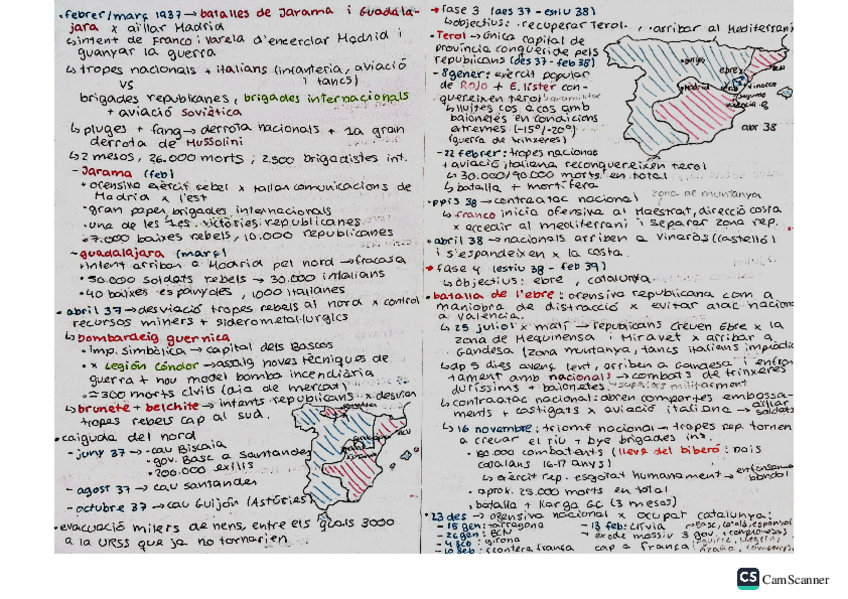 • febrer/març 1937 → batalles de Jarama i Guadala-
jara x aïllar Madrid
↳ intent de Franco i Varela d'encerclar Madrid i
guanyar la guerra
↳ tropes nacionals + italians (infanteria, aviació
i tancs)
VS
brigades republicanes, brigades internacionals
+ aviació soviètica
↳ pluges + fang → derrota nacionals + 1a gran
derrota de Mussolini
↳ 2 mesos, 26.000 morts; 2.500 brigadistes int.
- Jarama (feb)
• ofensiva exèrcit rebel x tallar comunicacions de
Madrid x l'est
• gran paper brigades internacionals
• una de les 1es. victòries republicanes
• 7.000 baixes rebels, 10.000 republicanes
- guadalajara (març)
• intent arriben a Madrid pel nord → fracasa
• 50.000 soldats rebels → 30.000 italians
• 40 baixes espanyoles, 1000 italianes
• abril 37 → desviació tropes rebels al nord x control
recursos miners + siderometal·lúrgics
↳ bombardeig guernica
• imp. simbòlica → capital dels bascos
• x Legión Cóndor → assaig noves tècniques de
guerra + nou model bomba incendiària
• ≈ 300 morts civils (dia de mercat)
↳ brunete + belchite → intents republicans x desviar
tropes rebels cap al sud.
• caiguda del nord
- juny 37 → cau Biscaia
• gov. Basc a Santander
• 200.000 exilis
- agost 37 → cau santander
- octubre 37 → cau Guijón (Astúries)
• evacuació milers de nens, entre els quals 3000
a la URSS que ja no tornarien
• fase 3 (des 37 - estiu 38)
↳ objectius: recuperar Terol, arribar al Mediterrani
• Terol → única capital de
província conquerida pels
republicans (des 37 - feb 38)
- 8 gener: exèrcit popular
de ROJO + E. líster con-
quereixen terol
↳ lluites cos a cos amb
baionetes en condicions
extremes (-15°/-20°)
(guerra de trinxeres)
abr 38
- 22 febrer: tropes nacionals
+ aviació italiana reconquereixen terol
↳ 30.000/40.000 morts en total
↳ batalla + mortífera
• ppis 38 → contraatac nacional zona de muntanya
↳ franco inicia ofensiva al Maestrat, direcció costa
x accedir al mediterrani i separar zona rep.
• abril 38 → nacionals arriben a Vinaròs (castelló)
i s'expandeixen x la costa.
• fase 4 (estiu 38 - feb 39)
↳ objectius: ebre, catalunya
• batalla de l'ebre: ofensiva republicana com a
maniobra de distracció x evitar atac nacional
a valència.
↳ 25 juliol x matí → republicans creuen Ebre x la
zona de Mequinensa i Miravet x arribar a
Gandesa (zona muntanya, tancs italians
↳ dp 5 dies avenç lent, arriben a Gandesa i enfron-
tament amb nacionals → combats de trinxeres
duríssims + baionetes
↳ contraatac nacional: obren comportes embossa-
ments + castigats x aviació italiana → aïllar
soldats
↳ 16 novembre: triomf nacional → tropes rep tornen
a creuar el riu + bye brigades int.
• combatents (lleva del biberó: nois
catalans 16-17 anys)
↳ exèrcit rep. esgotat humanament →
• aprox. 25.000 morts en total
, batalla + llarga GC (3 mesos)
• 23 des → ofensiva nacional x ocupar catalunya:
- 15 gen: tarragona
- 26 gen: BCN
- 4 feb: girona
- 10 feb: frontera frança
- 13 feb: Llívia
- exode massiu 3 gov.
cap a frança
CS CamScanner